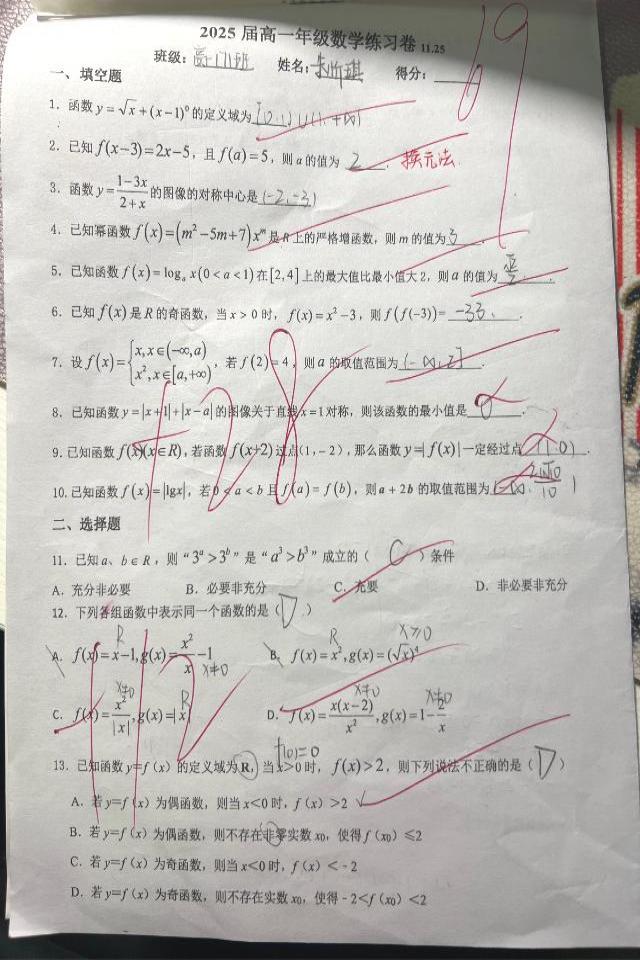 2025届高一年级数学练习卷 11.25
班级: 姓名: 得分:
69
一、填空题
1. 函数 y=√x+(x-1)⁰的定义域为[0,1)∪(1,+∞)
2. 已知 f(x-3)=2x-5，且 f(a)=5，则 a 的值为 2 . 换元法.
3. 函数 y=(1-3x)/(2+x) 的图像的对称中心是(-2,-3)
4. 已知幂函数 f(x)=(m²-5m+7)xᵐ是R上的严格增函数，则 m 的值为3.
5. 已知函数 f(x)=logₐx(0<a<1)在[2,4]上的最大值比最小值大2，则 a 的值为 √2/2 .
6. 已知 f(x)是R的奇函数，当 x>0 时，f(x)=x²-3，则 f(f(-3))= -33 .
7. 设 f(x)={x,x∈(-∞,a) x²,x∈[a,+∞)，若 f(2)=4，则 a 的取值范围为(-∞,2].
8. 已知函数 y=|x+1|+|x-a|的图像关于直线 x=1对称，则该函数的最小值是 .
9. 已知函数 f(x)(x∈R)，若函数 f(x+2)过点(1,-2)，那么函数 y=|f(x)|一定经过点 (1,0) .
10. 已知函数 f(x)=|lgx|，若0<a<b且 f(a)=f(b)，则 a+2b 的取值范围为
+28
二、选择题
11. 已知 a、b∈R，则“3ᵃ>3ᵇ”是“a³>b³”成立的（ C ）条件
A. 充分非必要 B. 必要非充分 C. 充要 D. 非必要非充分
12. 下列各组函数中表示同一个函数的是（ D ）
R x≥0
A. f(x)=x-1,g(x)=x²/x-1 x≠0 B. f(x)=x²,g(x)=(√x)⁴ R
x≠0 R x≠0 x≠0
C. f(x)=x²/|x|,g(x)=|x| D. f(x)=x(x-2)/x²,g(x)=1-2/x
+12
f(0)=0
13. 已知函数 y=f（x）的定义域为 R，当 x>0时，f(x)>2，则下列说法不正确的是（ D ）
A. 若 y=f（x）为偶函数，则当 x<0 时，f（x）>2
B. 若 y=f（x）为偶函数，则不存在非零实数 x₀，使得 f（x₀）≤2
C. 若 y=f（x）为奇函数，则当 x<0 时，f（x）<-2
D. 若 y=f（x）为奇函数，则不存在实数 x₀，使得 -2<f（x₀）<2